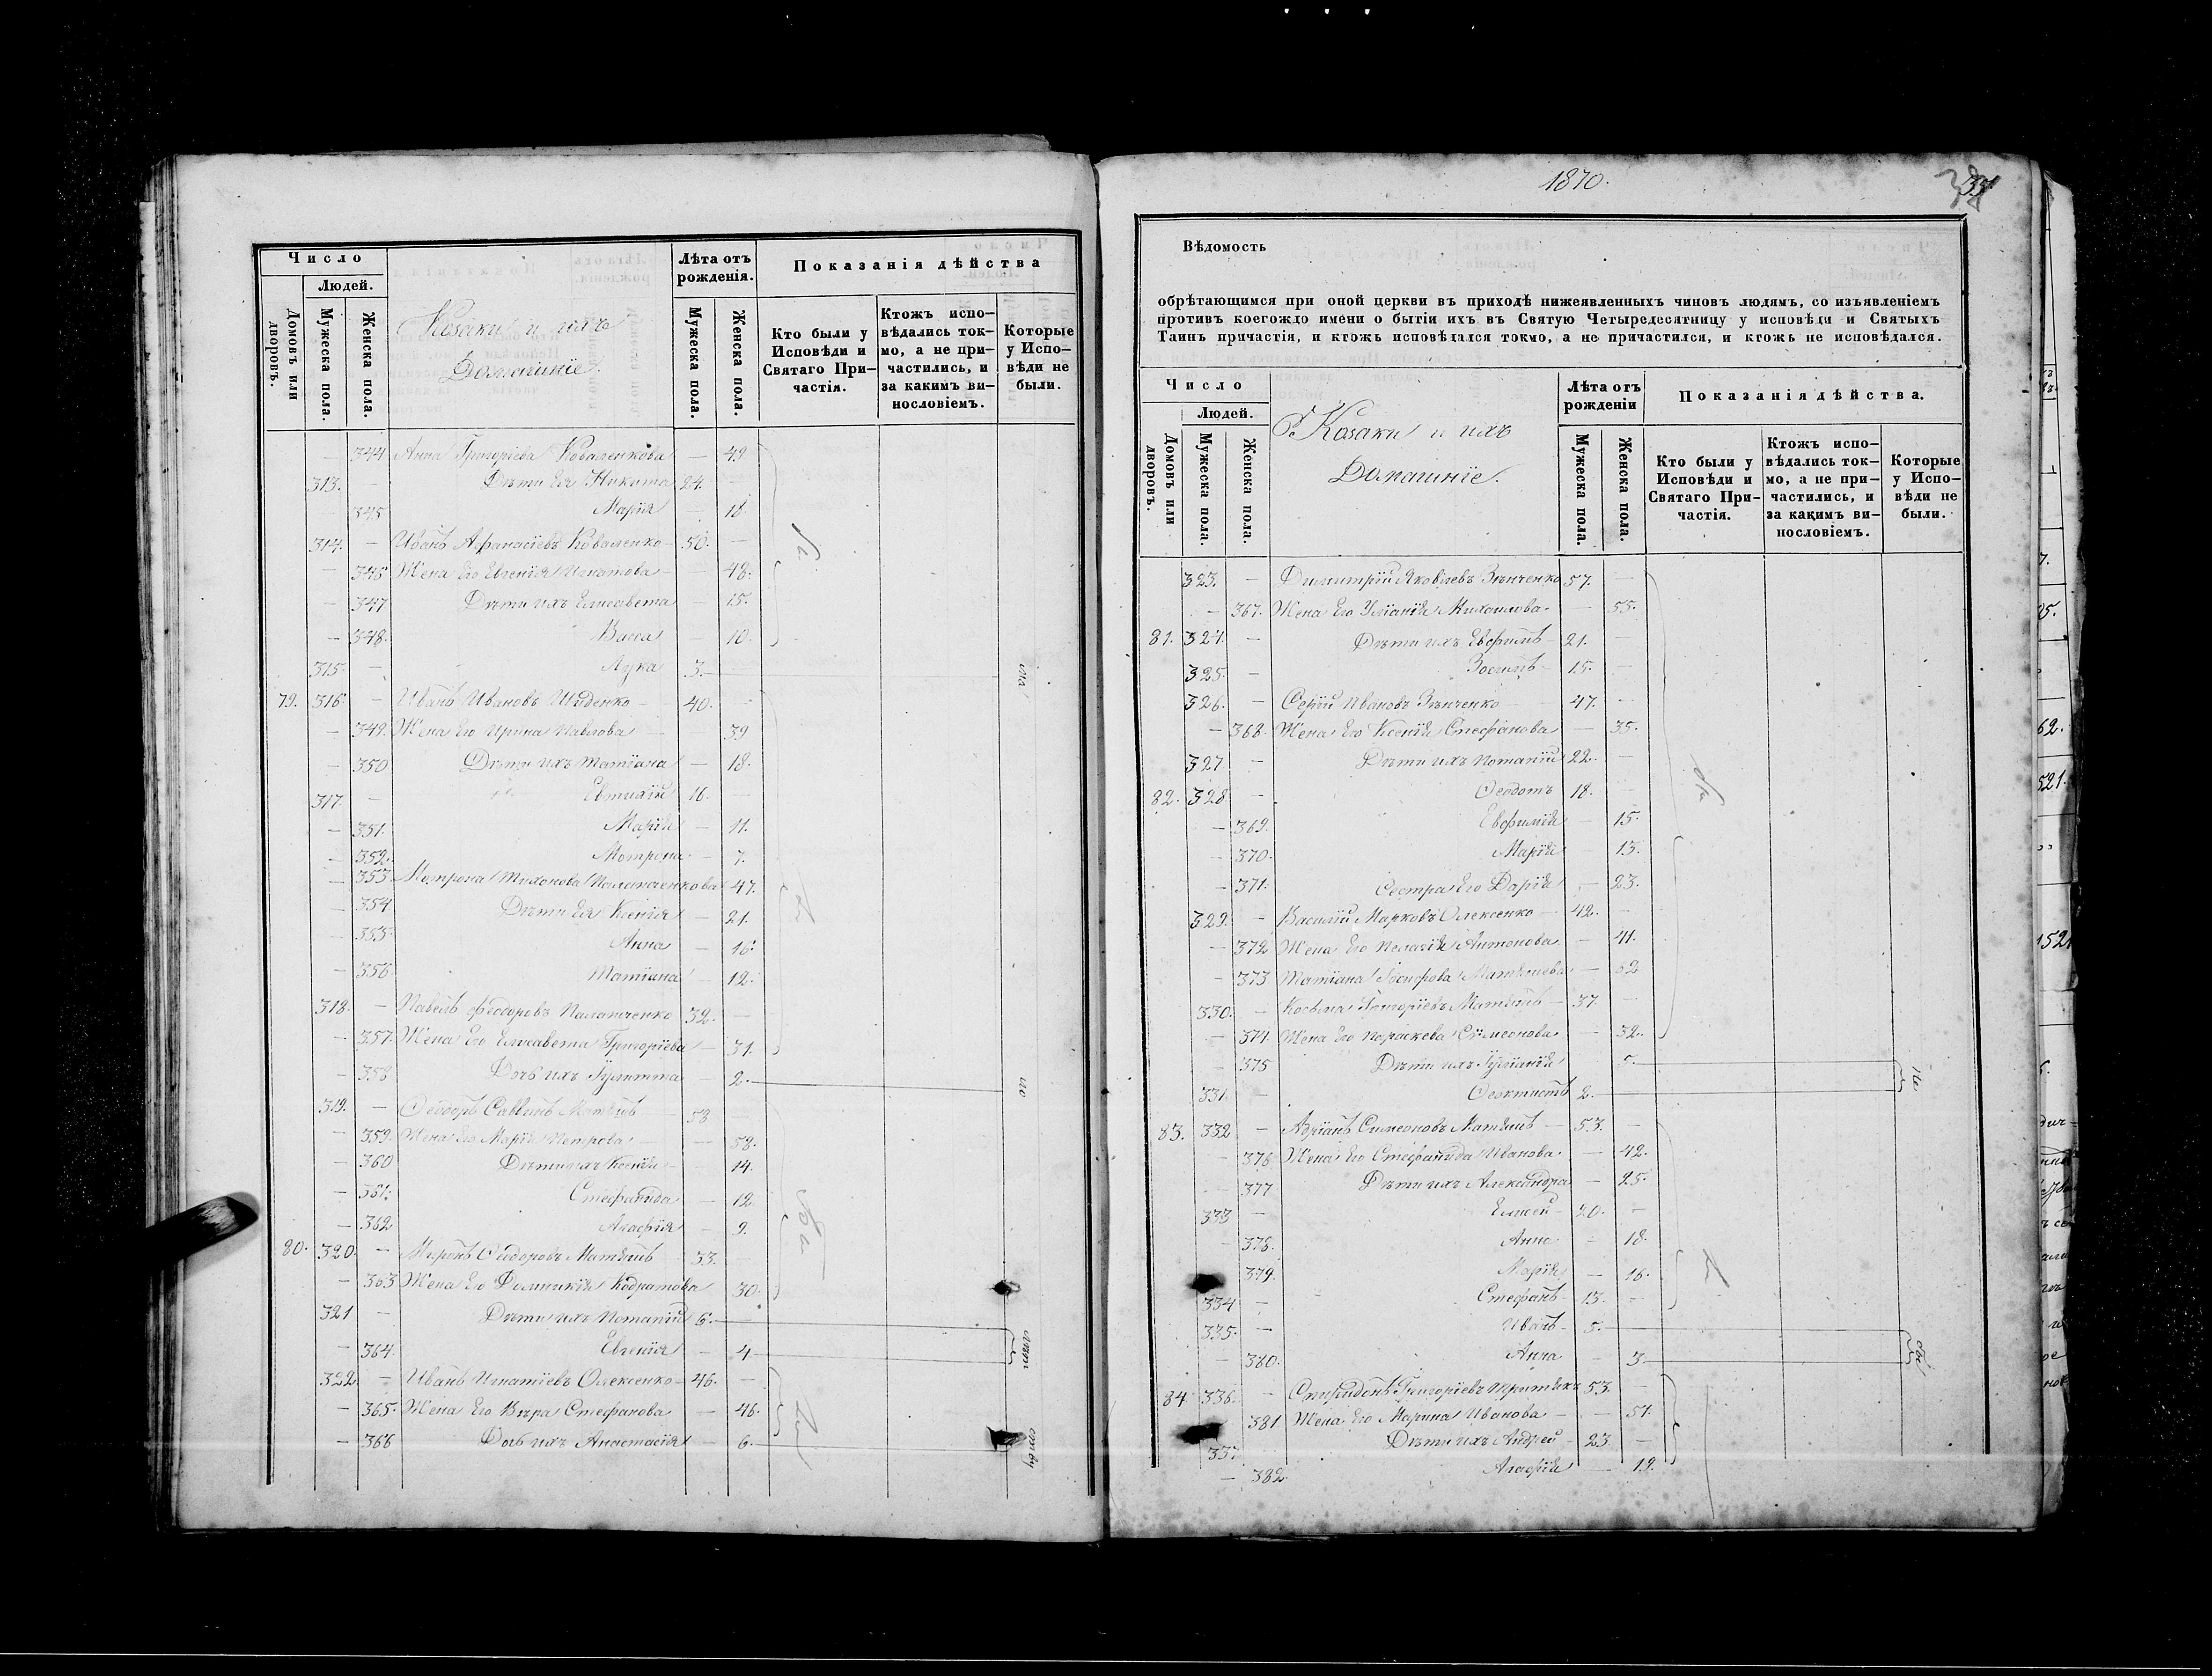 Число
Людей.
Домовъ или дворовъ.
Мужеска пола.
Женска пола.
Козаки и ихъ
Домашніе.
Лѣта отъ рожденія.
Мужеска пола.
Женска пола.
Показанія дѣйства
Кто были у Исповѣди и Святаго Причастія.
Ктожъ исповѣдались токмо, а не причастились, и за какимъ винословіемъ.
Которые у Исповѣди не были.
— 344 Анна Григоріева Коваленкова — 49
313. — Дѣти Ея Никита 24. —
345 Марія — 18.
314. — Иванъ Афанасіевъ Коваленко 50. —
— 346 Жена Его Евгенія Игнатова — 48.
— 347 Дѣти ихъ Елисавета — 15.
— 348. Васса — 10.
315. — Лука 3.
79. 316. — Иванъ Ивановъ 40. —
— 349. Жена Его Ирина Павлова — 39
— 350 Дѣти ихъ Татіана — 18.
317. — Евтихій 16. —
— 351. Марія — 11.
— 352. Мотрона — 7.
— 353. Мотрона Тихонова 47.
— 354. Дѣти Ея Ксенія — 21.
— 355. Анна — 16.
— 356. Татіана — 12.
318. — Павелъ Феодоровъ 32. —
— 357. Жена Его Елисавета Григоріева — 31.
— 358 Дочь ихъ Іулитта — 2.
319. — Феодоръ Саввинъ 58 —
— 359. Жена Его Марія Петрова — 58.
— 360 Дѣти ихъ Ксенія — 14.
— 361. Стефанида — 12
— 362 Агафія — 9.
80. 320. — Миронъ Феодоровъ 33. —
— 363 Жена Его Домникія Кодратова 30.
321 — Дѣти ихъ Потапій 6. —
— 364. Евгенія — 4
322 — Иванъ Игнатіевъ Олексенко 46. —
— 365. Жена Его Вѣра Стефанова — 46.
— 366 Дочь ихъ Анастасія — 6.
1870.
Вѣдомость
обрѣтающимся при оной церкви въ приходѣ нижеявленныхъ чиновъ людямъ, со изъявленіемъ
противъ коегождо имени о бытіи ихъ въ Святую Четыредесятницу у исповѣди и Святыхъ
Таинъ причастія, и ктожъ исповѣдался токмо, а не причастился, и ктожъ не исповѣдался.
Число
Людей.
Домовъ или дворовъ.
Мужеска пола.
Женска пола.
Козаки и ихъ
Домашніе.
Лѣта отъ рожденіи
Мужеска пола.
Женска пола.
Показанія дѣйства.
Кто были у Исповѣди и Святаго Причастія.
Ктожъ исповѣдались токмо, а не причастились, и за какимъ винословіемъ.
Которые у Исповѣди не были.
323. — Димитрій Яковлевъ Зѣнченко 57. —
— 367. Жена Его Уліанія Михаилова — 55.
81. 324. — Дѣти ихъ Евфимъ 21. —
325. — Зосимъ 15. —
326. — Сергій Ивановъ Зѣнченко 47. —
— 368. Жена Его Ксенія Стефанова — 35.
327 — Дѣти ихъ Потапій 22. —
82. 328 — Феодотъ 18. —
— 369. Евфимія — 15.
— 370. Марія — 13.
— 371. Сестра Его Дарія — 23.
329. — Василій Марковъ Олексенко 42. —
— 372 Жена Его Пелагія Антонова — 41.
— 373 Татіана Іосифова — 62
330. — Косьма Григоріевъ 37. —
— 374. Жена Его Параскева Симеонова — 32.
— 375 Дѣти ихъ Іуліанія 5.
331 — Феоктистъ 2.
83. 332 — Адріанъ Симеоновъ 53. —
— 376 Жена Его Стефанида Иванова — 42.
— 377 Дѣти ихъ Александра — 25.
333 — Елисей 20. —
— 378. Анна — 18.
— 379. Марія — 16.
334 — Стефанъ 13. —
335. — Иванъ 5.
— 380. Анна — 3.
84. 336. — Спиридонъ Григоріевъ 53. —
381 Жена Его Марина Иванова — 51.
337 Дѣти ихъ Андрей 23. —
— 382. Агафія — 19.